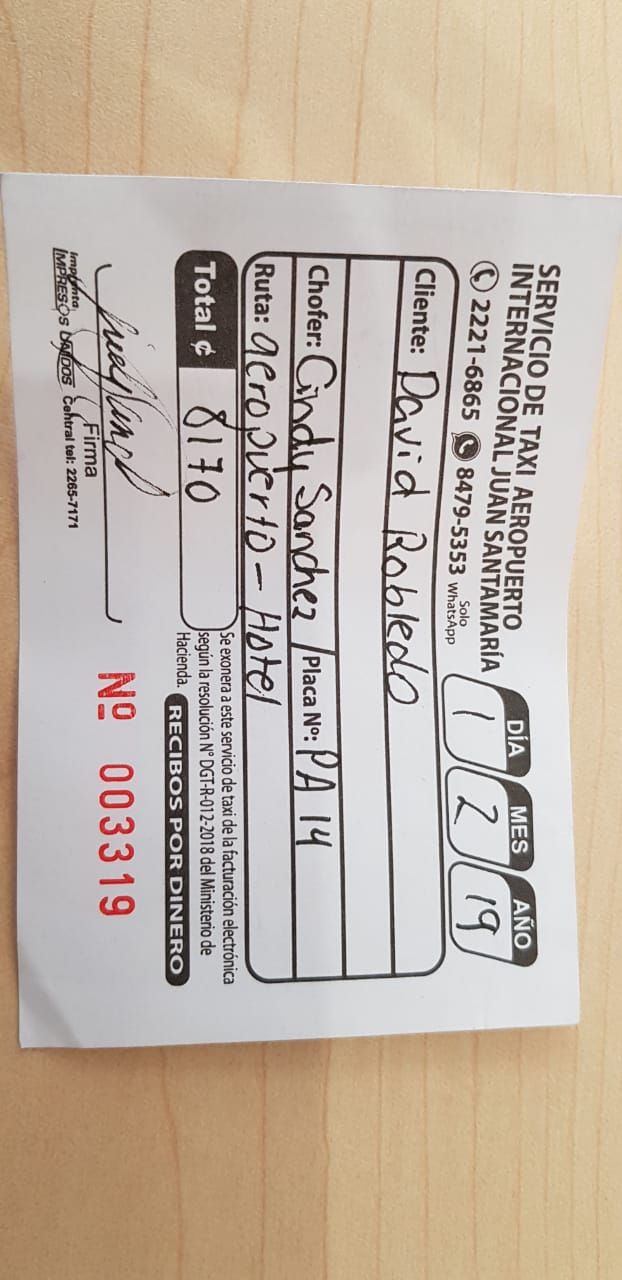 SERVICIO DE TAXI AEROPUERTO
INTERNACIONAL JUAN SANTAMARÍA
2221-6865 8479-5353 Solo WhatsApp
DÍA MES AÑO
1 2 19
Cliente: David Robledo
Chofer: Cindy Sanchez Placa Nº: PA 14
Ruta: aeropuerto - Hotel
Total ¢ 8170
Se exonera a este servicio de taxi de la facturación electrónica
según la resolución N° DGT-R-012-2018 del Ministerio de
Hacienda. RECIBOS POR DINERO
Firma
Nº 003319
Imprenta
IMPRESOS UNIDOS Central tel: 2265-7171